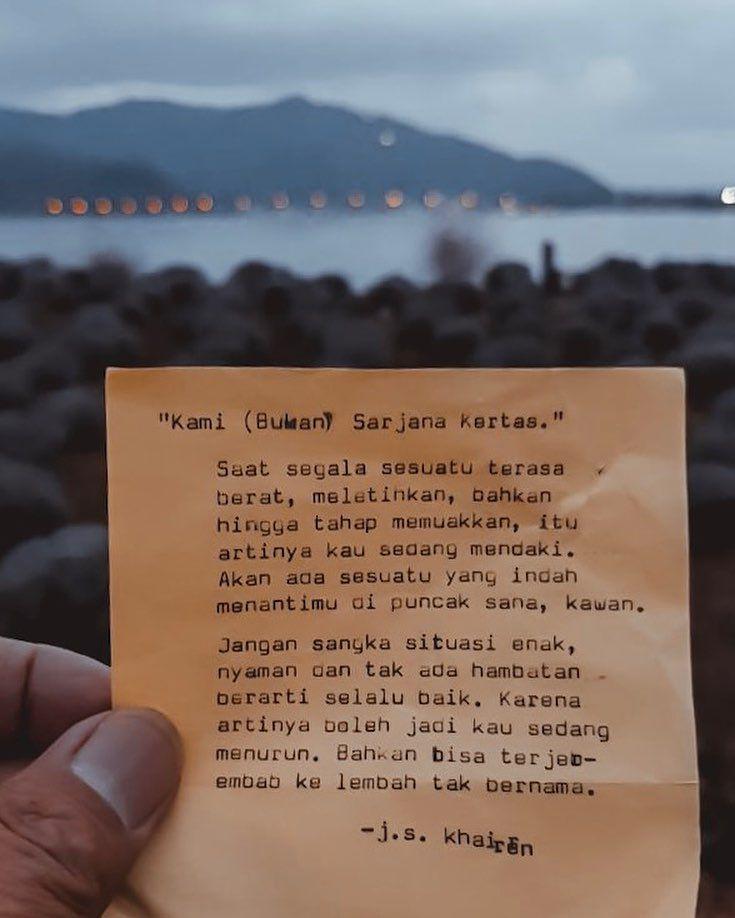 "Kami (Bukan) Sarjana Kertas."
Saat segala sesuatu terasa
berat, meletihkan, bahkan
hingga tahap memuakkan, itu
artinya kau sedang mendaki.
Akan ada sesuatu yang indah
menantimu di puncak sana, kawan.
Jangan sangka situasi enak,
nyaman dan tak ada hambatan
berarti selalu baik. Karena
artinya boleh jadi kau sedang
menurun. Bahkan bisa terjeb-
embab ke lembah tak bernama.
-j.s. khairen